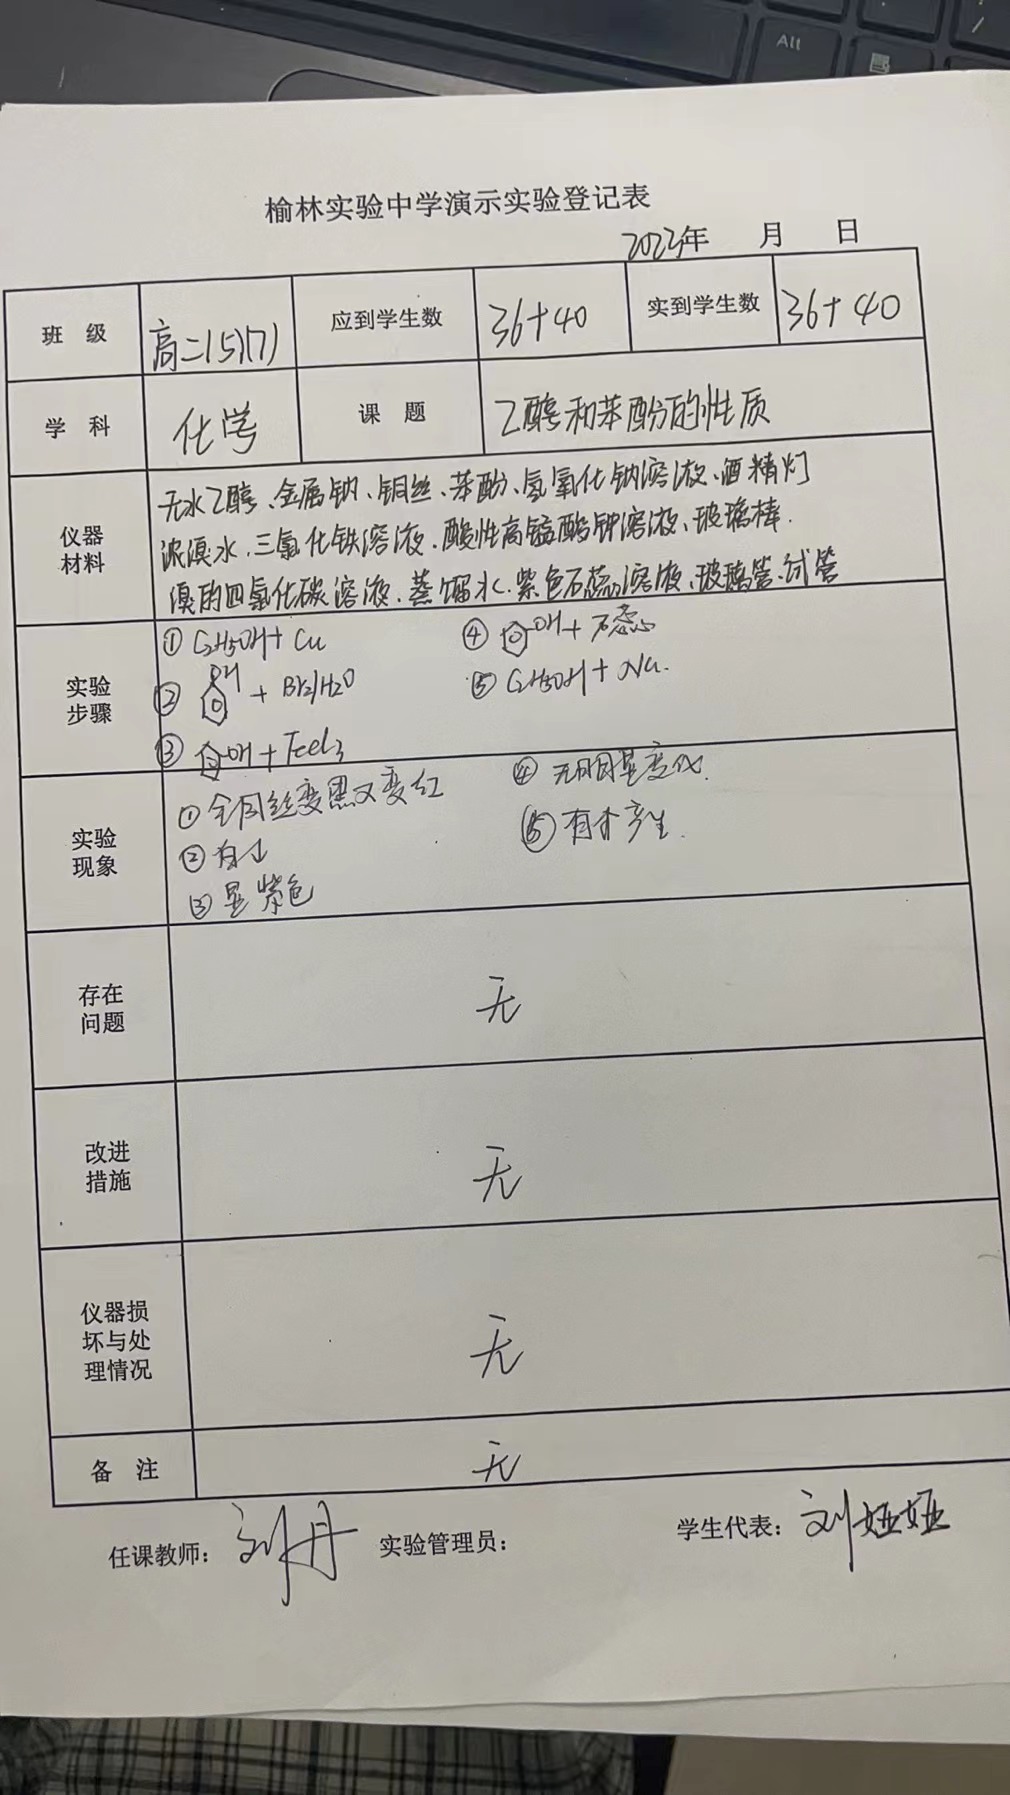 Alt
榆林实验中学演示实验登记表
2023年 月 日
班 级 高二(5)(7) 应到学生数 36+40 实到学生数 36+40
学 科 化学 课 题 乙醇和苯酚的性质
仪器
材料
无水乙醇、金属钠、铜丝、苯酚、氢氧化钠溶液、酒精灯
浓溴水、三氯化铁溶液、酸性高锰酸钾溶液、玻璃棒、
溴的四氯化碳溶液、蒸馏水、紫色石蕊溶液、玻璃管、试管
实验
步骤
① C2H5OH + Cu ④ OH + 石蕊
② OH + Br2/H2O ⑤ C2H5OH + Na.
③ OH + FeCl3
实验
现象
① 铜丝变黑又变红 ④ 无明显变化.
② 有↓ ⑤ 有↑产生.
③ 显紫色
存在
问题
无
改进
措施
无
仪器损
坏与处
理情况
无
备 注 无
任课教师：刘丹 实验管理员： 学生代表：刘娅娅